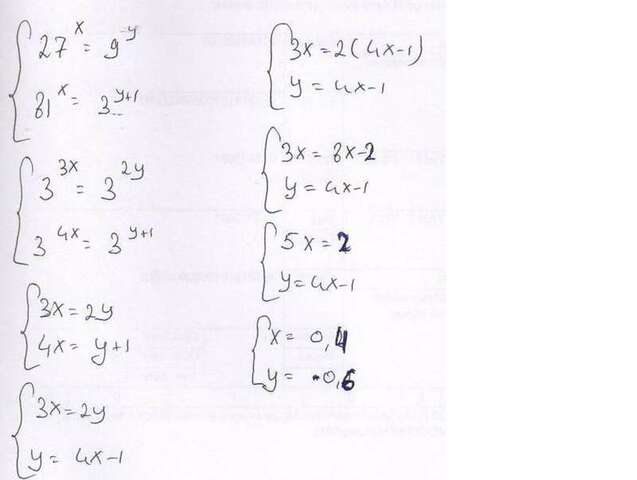 27^x = 9^-y
81^x = 3^y+1
3^3x = 3^2y
3^4x = 3^y+1
3x = 2y
4x = y+1
3x = 2y
y = 4x-1
3x = 2(4x-1)
y = 4x-1
3x = 8x-2
y = 4x-1
5x = 2
y = 4x-1
x = 0,4
y = -0,6